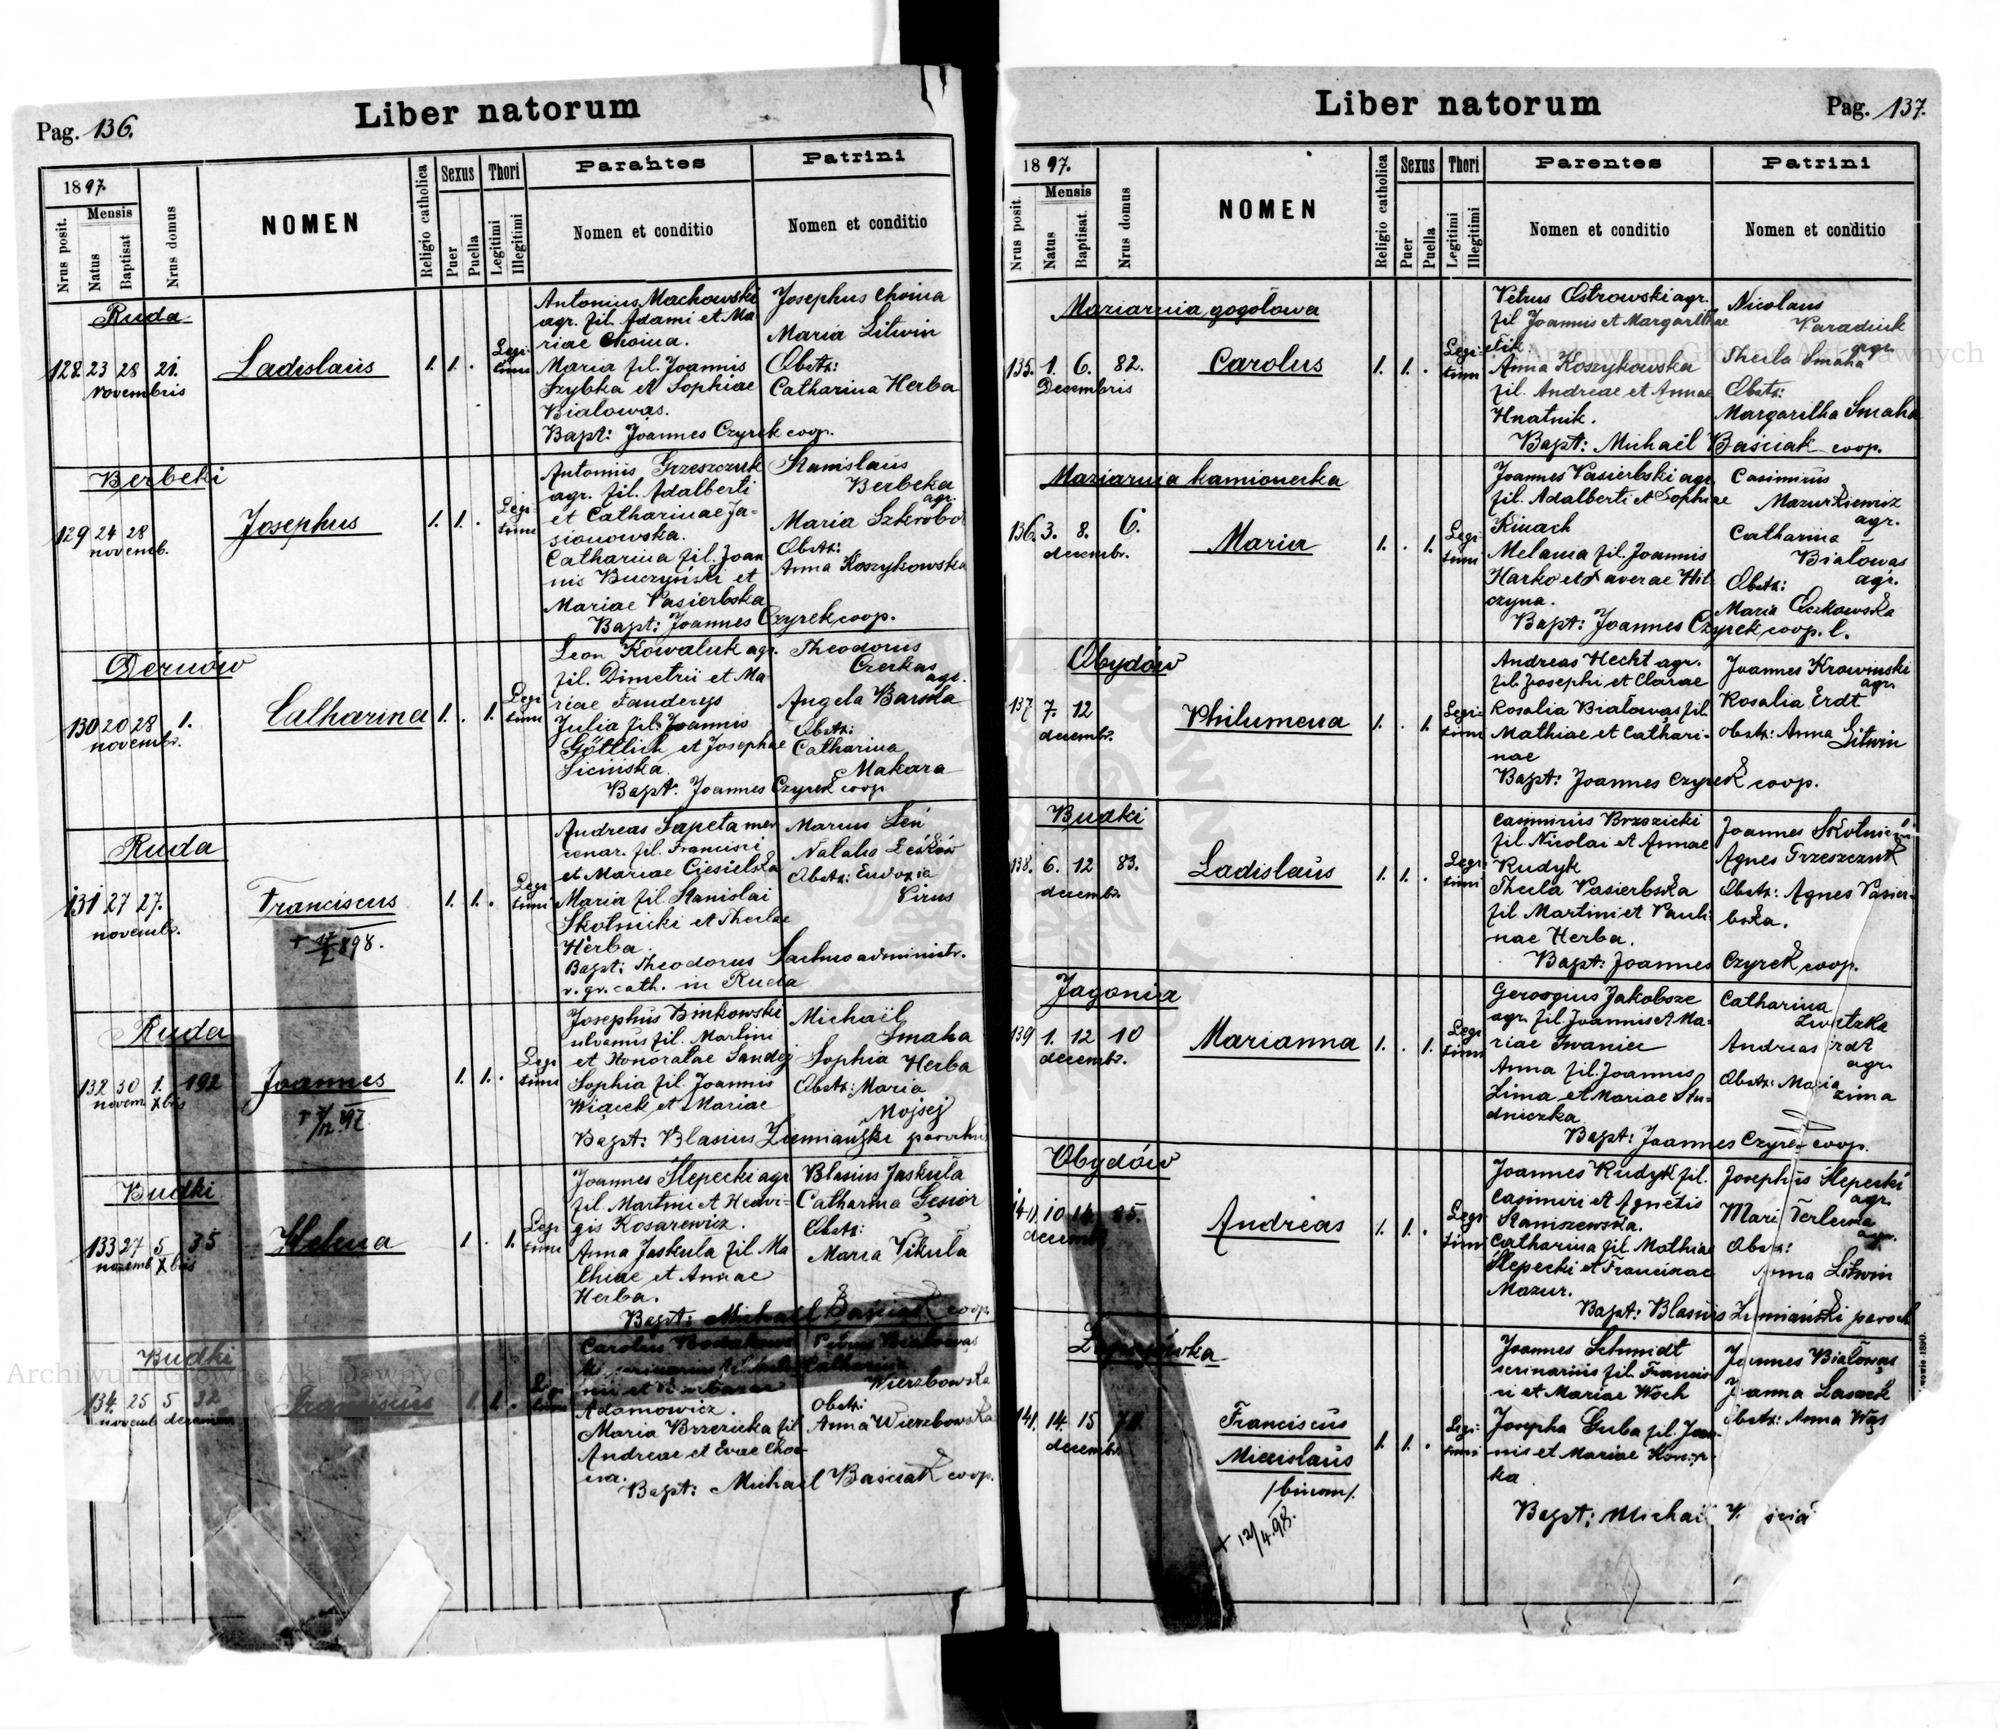 Pag. 136.
Liber natorum
1897.
Nrus posit.
Mensis
Natus
Baptisat
Nrus domus
NOMEN
Religio catholica
Sexus
Puer
Puella
Thori
Legitimi
Illegitimi
Parentes
Nomen et conditio
Patrini
Nomen et conditio
Ruda
128. 23 28 21.
Novembris
Ladislaus
1. 1. .
Legi-
timi
Antonius Machowski
agr. fil. Adami et Ma
riae Choina.
Maria fil. Joannis
Szybka et Sophiae
Bialowąs.
Bapt: Joannes Czyrek coop.
Josephus Choina
Maria Litwin
Obstr:
Catharina Herba
Berbeki
129 24 28
novemb.
Josephus
1. 1. .
Legi-
timi
Antoniis Grzeszczuk
agr. fil. Adalberti
et Catharinae Ja-
sionowska.
Catharina fil. Joan
nis Buczyński et
Mariae Pasierbska
Bapt: Joannes Czyrek coop.
Stanislaus
Berbeka
agr.
Maria Szkrobot
Obstr:
Anna Koszykowska
Dernów
130 20 28 1.
novembr.
Catharina
1. . 1.
Legi
timi
Leon Kowaluk agr.
fil. Dimetrii et Ma
riae Fanderys
Julia fil. Joannis
Göttlich et Josephae
Sicińska.
Bapt: Joannes Czyrek coop
Theodorus
Czerkas
agr.
Angela Barska
Obstr:
Catharina
Makara
Ruda
131 27 27.
novembr.
Franciscus
1. 1. .
Legi
timi
Andreas Sapeta mer
cenar. fil. Francisci
et Mariae Ciesielska
Maria fil. Stanislai
Skotnicki et Theclae
Herba.
Bapt: Theodorus administr.
r. gr. cath. in Ruda
Marcus Leń
Natalia Leśków
Obstr: Eudoxia
Pirus
Ruda
132 30 1. 192
novem. Xbris
Joannes
1. 1. .
Legi
timi
Josephus Binkowski
fil. Martini
et Honoratae Sandej
Sophia fil. Joannis
Wiącek et Mariae
Bapt: Blasius Ziemiański parochus
Michaël
Smaha
Sophia Herba
Obstr: Maria
Mojsej
Budki
133 27 5 35
novemb Xbris
Helena
1. . 1.
Legi
timi
Joannes Ślepecki agr
fil. Martini et Hedvi-
gis Kosarewicz.
Anna Jaskula fil. Ma
thiae et Annae
Herba.
Bapt: Michaël Baściak coop.
Blasius Jaskuła
Catharina Gęsior
Obstr:
Maria Pikuła
Budki
134. 25 5 32
novemb decemb
Franciscus
1. 1. .
Legi
timi
Carolus
et Barbarae
Adamowicz.
Maria Brzezicka fil
Andreae et Evae Choi
na.
Bapt: Michaël Baściak coop.
Petrus Białowąs
Catharina
Wierzbowska
Obstr:
Anna Wierzbowska
Liber natorum
Pag. 137.
1897.
Nrus posit.
Mensis
Natus
Baptisat.
Nrus domus
NOMEN
Religio catholica
Sexus
Puer
Puella
Thori
Legitimi
Illegitimi
Parentes
Nomen et conditio
Patrini
Nomen et conditio
Maziarnia gogołowa
135. 1. 6. 82.
Decembris
Carolus
1. 1. .
Legi
timi
Petrus Ostrowski agr.
fil Joannis et Margarithae
Anna Koszykowska
fil. Andreae et Annae
Hnatnik.
Bapt: Michaël Baściak coop.
Nicolaus
Paradiuk
agr.
Thecla Smaha
Obstr:
Margaritha Smaha
Maziarnia kamionecka
136. 3. 8. 6.
decembr.
Maria
1. . 1.
Legi
timi
Joannes Pasierbski agr
fil. Adalberti et Sophiae
Kinach
Melania fil. Joannis
Harko et Xaverae Hil
czyna.
Bapt: Joannes Czyrek coop. l.
Casimirus
Mazurkiewicz
agr.
Catharina
Białowąs
agr.
Obstr:
Maria Oczkowska
Obydów
137 7. 12
decembr.
Philumena
1. . 1.
Legi
timi
Andreas Hecht agr.
fil. Josephi et Clarae
Rosalia Białowąs fil.
Mathiae et Cathari-
nae
Bapt: Joannes Czyrek coop.
Joannes Krowinski
agr.
Rosalia Erdt
obstr: Anna
Litwin
Budki
138. 6. 12 83.
decembr.
Ladislaus
1. 1. .
Legi
timi
Casimirus Brzozicki
fil. Nicolai et Annae
Rudyk
Thecla Pasierbska
fil Martini et Pauli-
nae Herba.
Bapt: Joannes Czyrek coop.
Joannes Skotnicki
Agnes Grzeszczuk
Obstr: Agnes Pasier-
bska.
Jagonia
139 1. 12 10
decembr.
Marianna
1. . 1.
Legi
timi
Georgius Jakobsze
agr. fil. Joannis et Ma-
riae Iwaniec
Anna fil. Joannis
Zima et Mariae Stu-
dniczka.
Bapt: Joannes Czyrek coop.
Catharina
Andreas Erdt
agr.
Obstr: Maria
Zima
Obydów
140. 10 14 85.
decembr.
Andreas
1. 1. .
Legi
timi
Joannes Rudyk fil.
Casimiri et Agnetis
Staniszewska.
Catharina fil Mathiae
Ślepecki et Franciscae
Mazur.
Bapt: Blasius Ziemiański paroch
Josephus Ślepecki
agr.
Maria Terlecka
agr.
Obstr:
Anna Litwin
Łapajówka
141. 14. 15 70.
decembr.
Franciscus
Miecislaus
/binom/.
+ 12/4.98.
1. 1. .
Legi-
timi
Joannes Schmidt
fil. Francis-
ci et Mariae Woch
Josepha Guba fil. Joan-
nis et Mariae
ka
Bapt: Michaël
Joannes Białowąs
Joanna
Obstr: Anna Wąs
Archiwum Główne Akt Dawnych
Archiwum Główne Akt Dawnych